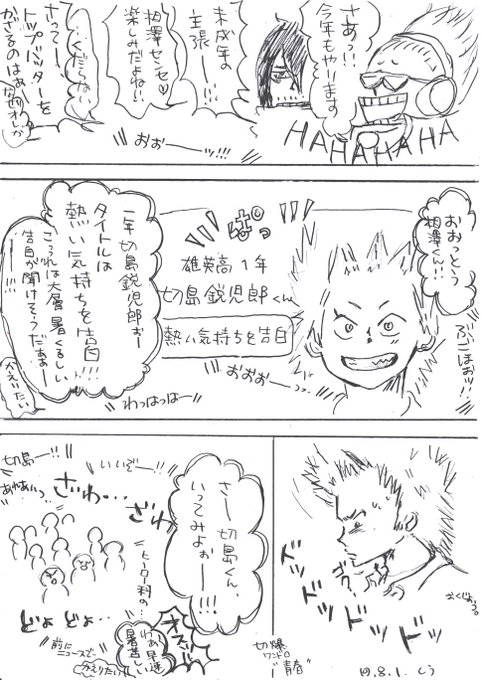 さあっ!!
今年もやります
未成年の
主張ー!!!
相澤センセ♡
楽しみだよねい!
…くだらない
さって!!
トップバッターを
かざるのはぁ
おぉー…ッ!!!
HAHAHAHA
おおっという
相澤くん…!!
ぶごほぉッ!!
ぱっ
雄英高1年
切島鋭児郎くん
熱い気持ちを告白
おぉぉー…っ
一年切島鋭児郎ぉー
タイトルは
熱い気持ちを告白!!!
こっれは大層暑くるしい
告白が聞けそうだぁぁー
ー!!!
かえりたい
わっはっはー
ドッドッドッドッ
さー切島くん、
いってみよぉー
ー!!!
切島ー!!
いいぞー!!
ざわ… ざわ
どよ どよ…
ヒーロー科の…
前に
ニュースで…
オスッ!!
わぁ早速
暑苦しい
かえりたい
切爆
ワンドロ
"青春"
19.8.1.